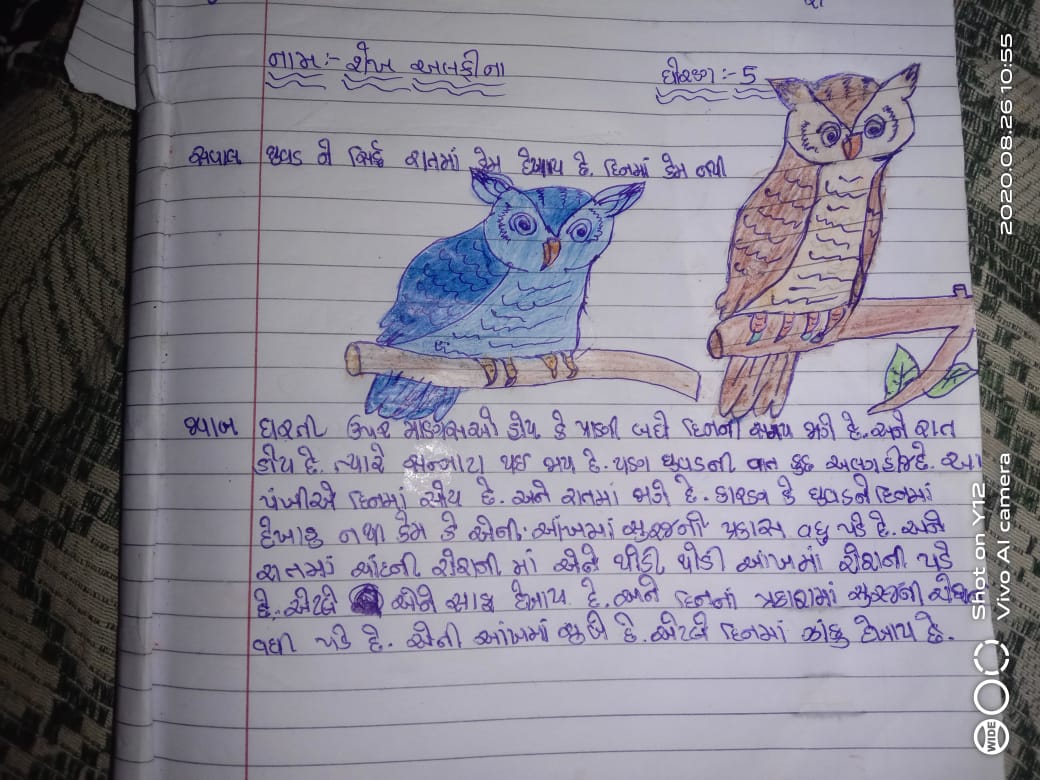 નામ:- શેખ અલફીના
ધોરણ:- 5
સવાલ ઘુવડ ને સિર્ફ રાતમાં કેમ દેખાય છે. દિનમાં કેમ નથી
જવાબ ધરતી ઉપર માણસઓ હોય કે પ્રાણી બધે દિનની સમય જાગે છે. અને રાત
હોય છે. ત્યારે સન્નાટા થઈ જાય છે. પણ ઘુવડની વાત કુછ અલગ હોય છે. આ
પંખીએ દિનમાં સોય છે. અને રાતમાં જાગે છે. કારણ કે ઘુવડને દિનમાં
દેખાતુ નથી કેમ કે એની આંખમાં સુરજની પ્રકાસ વધુ પડે છે. અને
રાતમાં ચાંદની રોશની માં એને થોડી થોડી આંખમાં રોશની પડે
છે. એટલે એને સાફ દેખાય છે. અને દિનનાં પ્રકાશમાં સુરજની
વધી પડે છે. એની આંખમાં છે. એટલે દિનમાં ઝાંકુ દેખાય છે.
2020.08.26 10:55
Shot on Y12
Vivo AI camera
WIDE